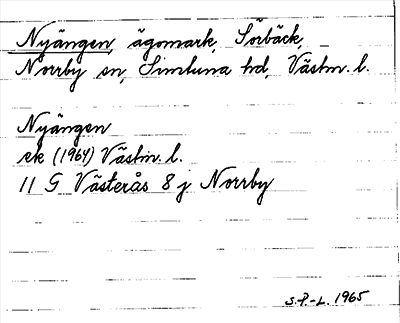 Nyängen, ägomark, Sörbäck,
Norrby sn, Simtuna hd, Västm. l.
Nyängen
ek (1964) Västm. l.
11 G Västerås 8 j Norrby
S.P.-L. 1965